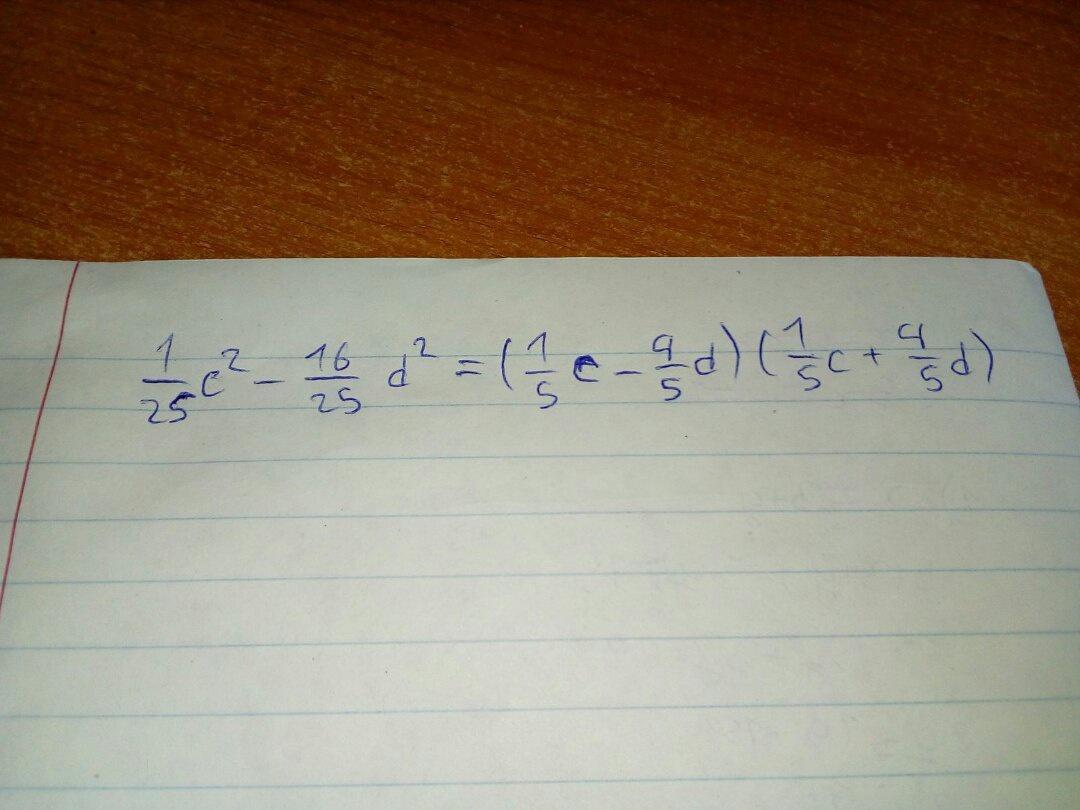 1/25 c² - 16/25 d² = (1/5 c - 4/5 d) (1/5 c + 4/5 d)